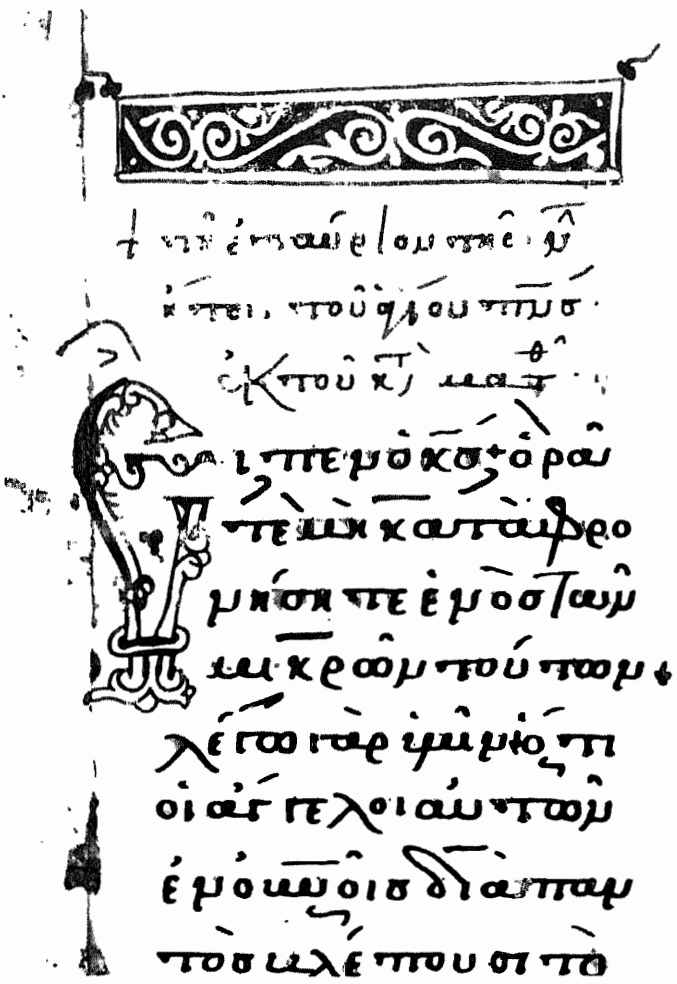 † τῇ ἐπαύριον τῆς ν̄
ἑκ τοῦ κατ ματθ
Εἶπεν ὁ κ̅σ̅· ὁρᾶ
τε μὴ καταφρο
νήσητε ἑνὸς τῶν
μικρῶν τούτων +
λέγω γὰρ ὑμῖν ὅτι
οἱ ἄγγελοι αὐτῶν
ἐν ὀυ̅ν̅οις διὰ παν
τὸς βλέπουσι τὸ